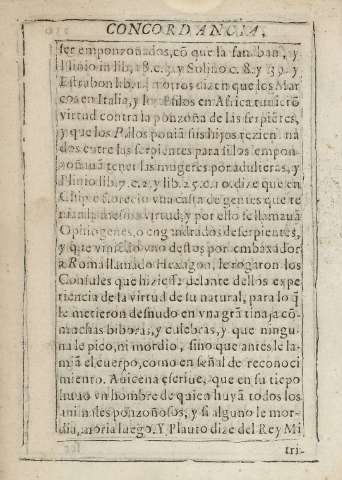 CONCORDANCIA,
ser emponzoñados, cõ que la sanaban, y
Plinio in lib, 28. c. 3. y Solino c. 8. y 39. y
Estrabon lib. y otros dizen que los Mar
cos en Italia, y los Psilos en Africa tuuierõ
virtud contra la ponzoña de las serpiẽtes,
y que los Psilos poniã sus hijos rezien na
dos entre las serpientes para si los empon
zoñauã tener las mugeres por adulteras, y
Plinio lib. 7. c. 2. y lib. 25. c. 10. dize que en
Chipre florecio vna casta de gentes que te
nian la mesma virtud, y por ello se llamauã
Opiogenes, o engendrados de serpientes,
y que viniẽdo vno destos por embaxador
a Roma llamado Hexagon, le rogaron los
Consules que hiziesse delante dellos expe
riencia de la virtud de su natural, para lo q̃
le metieron desnudo en vna grã tinaja cõ
muchas biboras, y culebras, y que ningu
na le pico, ni mordio, sino que antes le la-
miã el cuerpo, como en señal de reconoci
miento. Auicena escriue, que en su tiẽpo
huuo vn hombre de quien huyã todos los
animales ponzoñosos, y si alguno le mor-
dia, moria luego. Y Plauto dize del Rey Mi